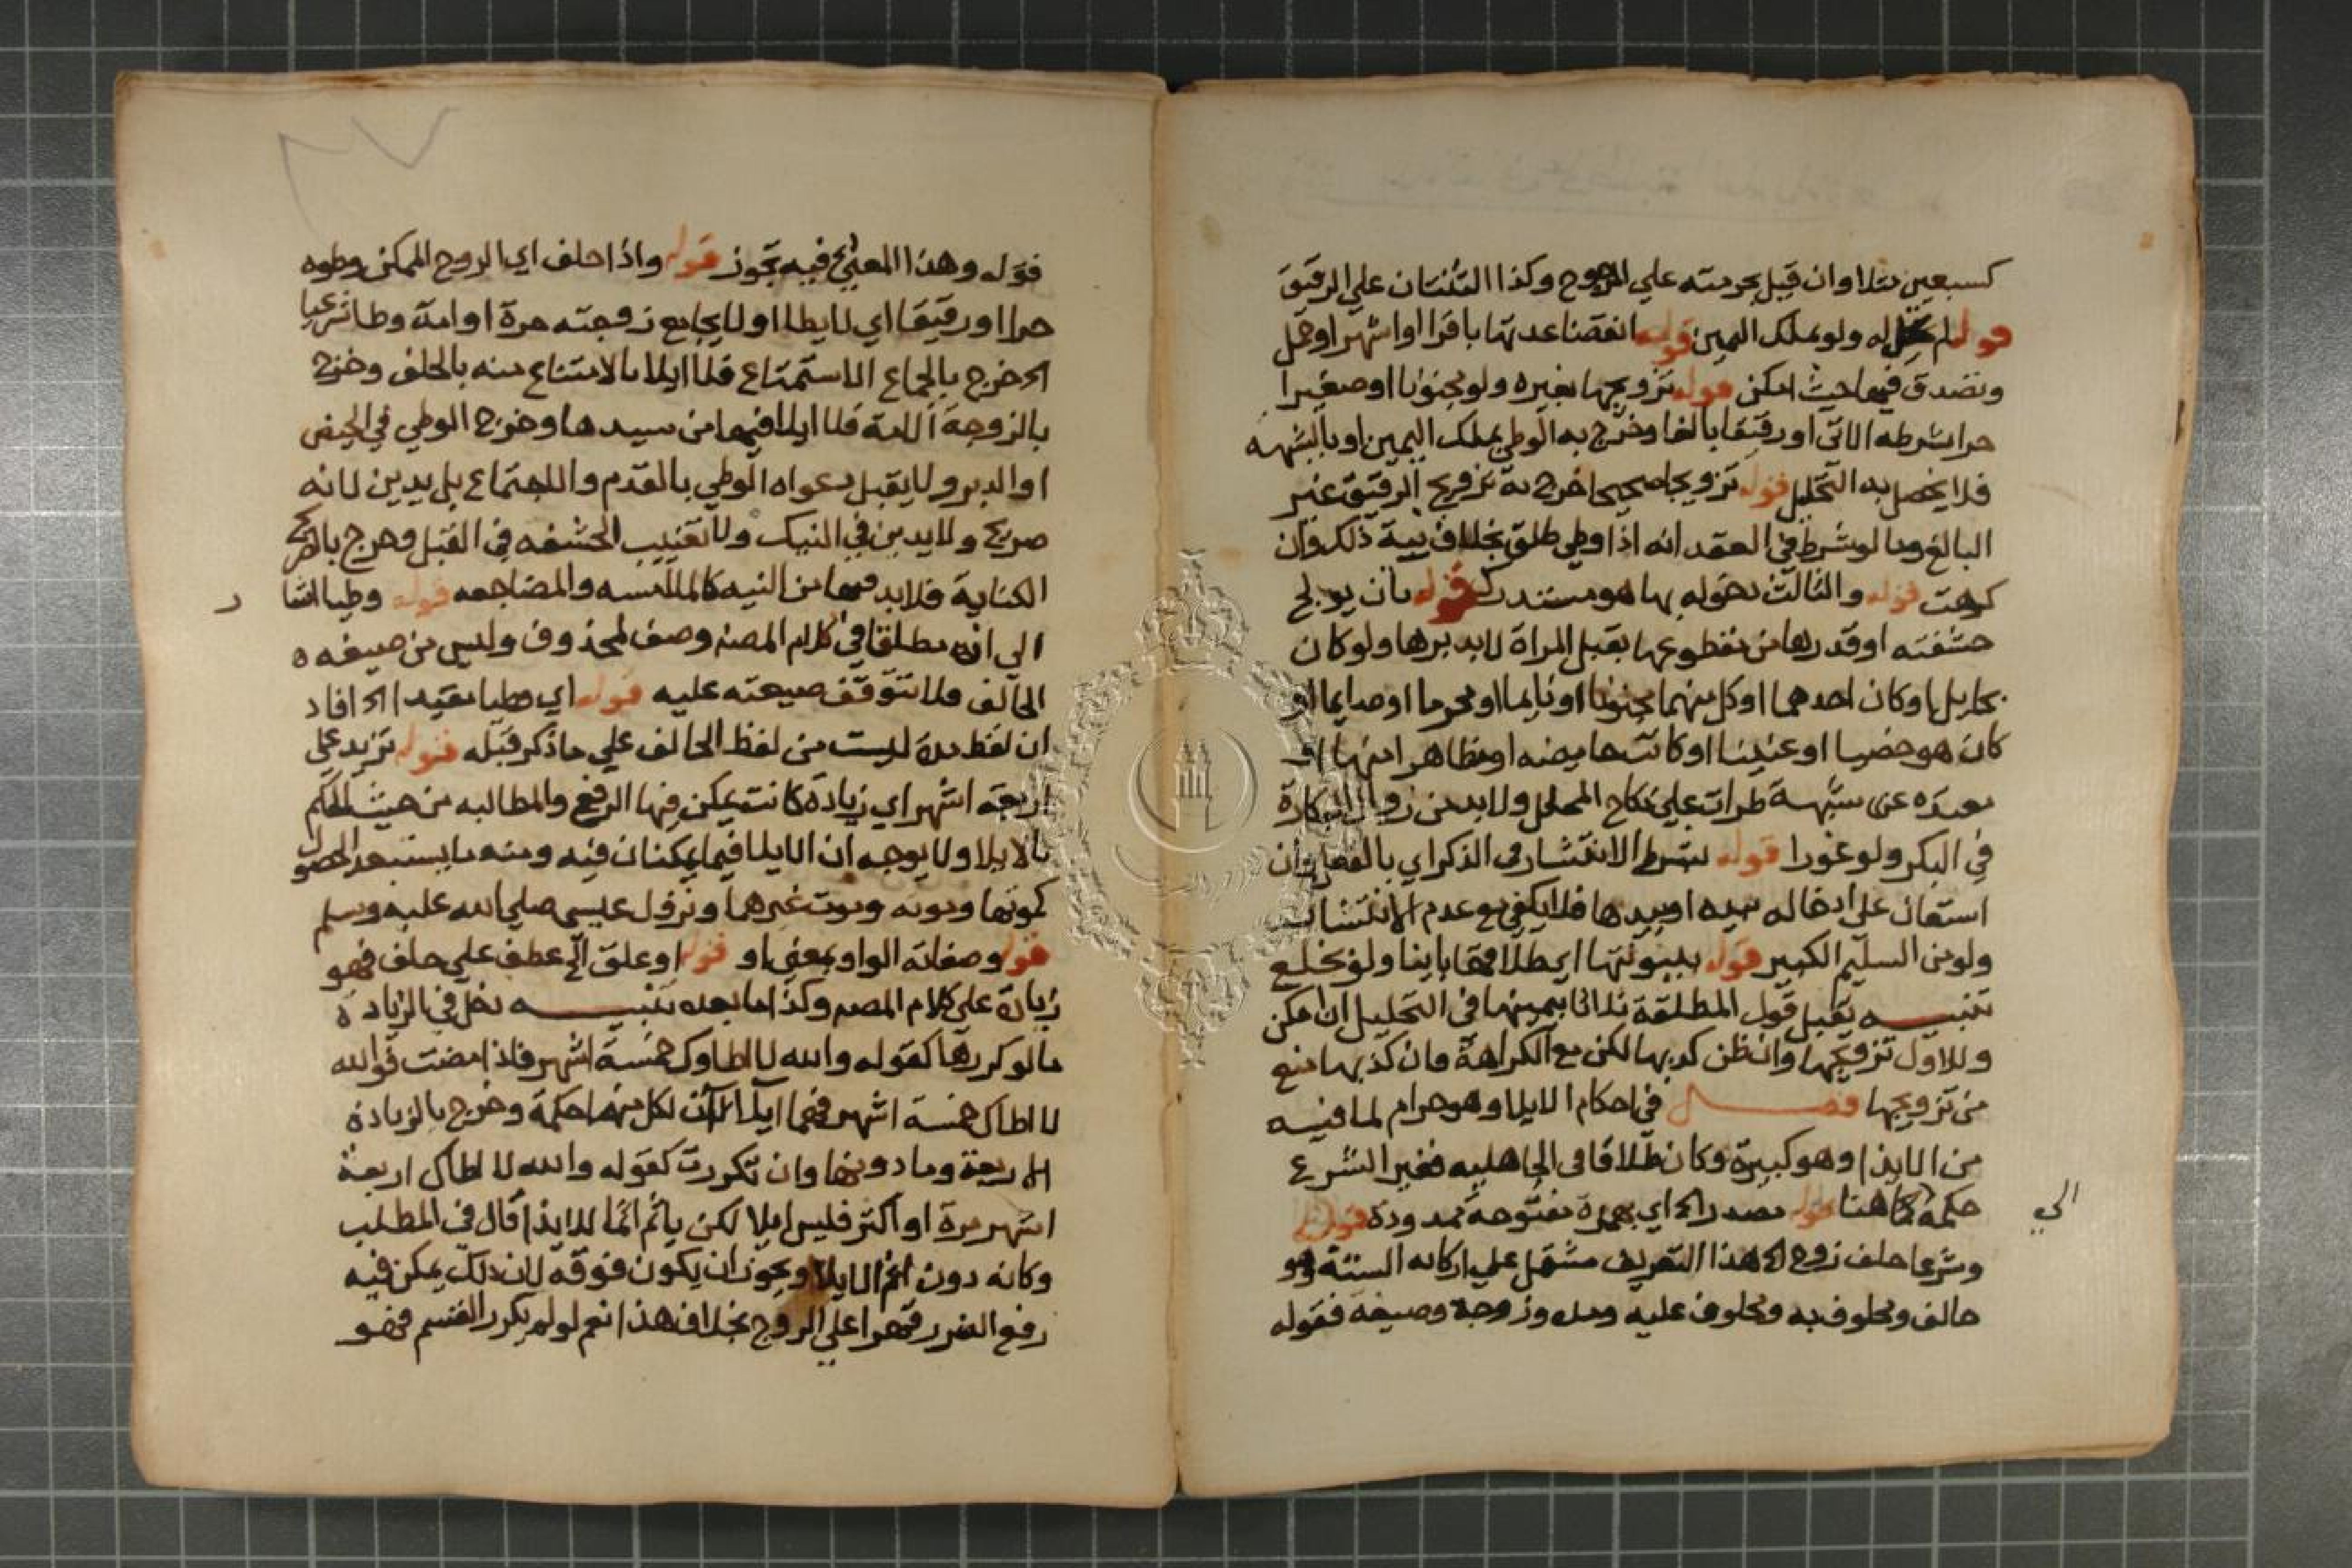 كسبعين مثلا وان قيل بحرمته علي المرجوح وكذا الثنتان علي الرقيق
قوله لم تحل له ولو بملك اليمين قوله انقضا عدتها باقرا او اشهر او حمل
وتصدق فيها حيث امكن قوله تزويجها بغيره ولو مجنونا او صغيرا
حرا بشرطه الاتي او رقيقا بالغا وخرج به الوطي بملك اليمين او بالشبهه
فلا يحصل به التحليل قوله تزويجا صحيحا خرج به تزويج الرقيق غير
البالغ وما لو شرط في العقد انه اذا وطي طلق بخلاف نية ذلك وان
كرهت قوله والثالث دخوله بها هو مستدرك قوله بان يولج
حشفته او قدرها من مقطوعها بقبل المراة لا بدبرها ولو كان
بحايل او كان احدهما او كل منهما مجنونا او نايما او محرما او صايما او
كان هو خصيا او عنينا او كانت حايضه او مظاهرا منها او
معتده عن شبهة طرات علي نكاح المحلل ولا بد من زوال البكارة
في البكر ولو غورا قوله بشرط الانتشار في الذكر اي بالفعل وان
استعان علي ادخاله بيده او بيدها فلا يكفي مع عدم الانتشار
ولو من السليم الكبير قوله بينونتها اي طلاقها باينا ولو بخلع
تنبيه يقبل قول المطلقة ثلاثا بيمينها في التحليل ان امكن
وللاول تزويجها وان ظن كذبها لكن مع الكراهة فان كذبها منع
من تزويجها فصل في احكام الايلا وهو حرام لما فيه
من الايذا وهو كبيرة وكان طلاقا في الجاهلية فغير الشرع
حكمه الي ما هنا قوله مصدر الخ اي بهمزة مفتوحة ممدودة قوله
وشرعا حلف زوج الخ هذا التعريف مشتمل علي اركانه الستة وهو
حالف ومحلوف به ومحلوف عليه ومدة وزوجة وصيغة فقوله
قوله وهذا المعني الخ فيه تجوز قوله واذا حلف اي الزوج الممكن وطوه
حرا او رقيقا اي لا يطا او لا يجامع زوجته حرة او امة وطا شرعيا
الخ خرج بالجماع الاستمتاع فلا ايلا بالامتناع منه بالحلف وخرج
بالزوجة الامة فلا ايلا فيها من سيدها وخرج الوطي في الحيض
او الدبر ولا يقبل دعواه الوطي بالقدم والاجتماع بل يدين لانه
صريح ولا يدين في النيك ولا تغييب الحشفه في القبل وخرج بالصريح
الكناية فلا بد فيها من النيه كالملامسه والمضاجعه قوله وطيا اشار
الي ان مطلقا في كلام المصنف وصف لمحذوف وليس من صيغه
الحالف فلا تتوقف صيغته عليه قوله اي وطيا مقيدا الخ افاد
ان لفظ مدة ليست من لفظ الحالف علي ما ذكر قبله قوله تزيد علي
اربعة اشهر اي زيادة كانت يمكن فيها الرفع والمطالبه من حيث الحكم
بالايلا ولا يوجه ان الايلا فيما يمكنان فيه ومنه ما يستبعد الحصول
كموتها وموته وموت غيرهما ونزول عيسي صلي الله عليه وسلم
قوله وصفاته الواو بمعني او قوله او علق الخ عطف علي حلف فهو
زيادة علي كلام المصنف وكذا ما بعده تنبيه دخل في الزيادة
ما لو كررها كقوله والله لا اطاوك خمسة اشهر فاذا مضت فوالله
لا اطاك خمسة اشهر فهما ايلاآن لكل منهما حكمة وخرج بالزيادة
الاربعة وما دونها وان تكررت كقوله والله لا اطاك اربعة
اشهر مرة او اكثر فليس ايلا لكن ياثم اثما للايذا قال في المطلب
وكانه دون اثم الايلا ويجوز ان يكون فوقه لان ذلك يمكن فيه
رفع الضرر قهرا علي الزوج بخلاف هذا نعم لو لم يكرر القسم فهو